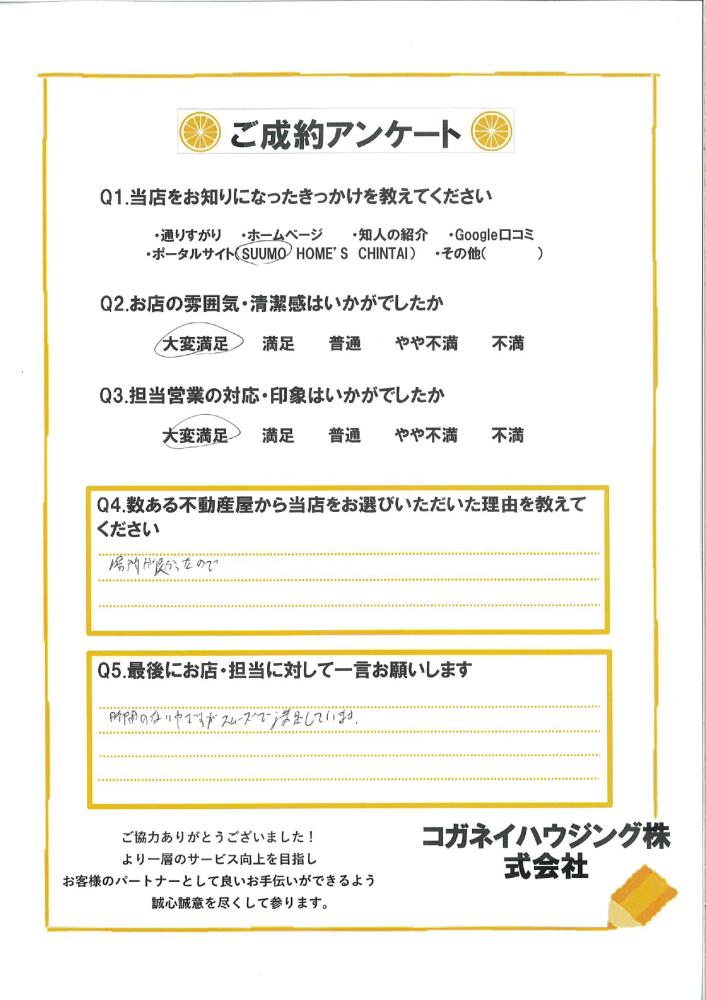 ご成約アンケート
Q1.当店をお知りになったきっかけを教えてください
・通りすがり ・ホームページ ・知人の紹介 ・Google口コミ
・ポータルサイト(SUUMO HOME'S CHINTAI) ・その他( )
Q2.お店の雰囲気・清潔感はいかがでしたか
大変満足 満足 普通 やや不満 不満
Q3.担当営業の対応・印象はいかがでしたか
大変満足 満足 普通 やや不満 不満
Q4.数ある不動産屋から当店をお選びいただいた理由を教えて
ください
場所が良かったので
Q5.最後にお店・担当に対して一言お願いします
時間のない中ですがスムーズで満足しています。
ご協力ありがとうございました！
より一層のサービス向上を目指し
お客様のパートナーとして良いお手伝いができるよう
誠心誠意を尽くして参ります。
コガネイハウジング株
式会社